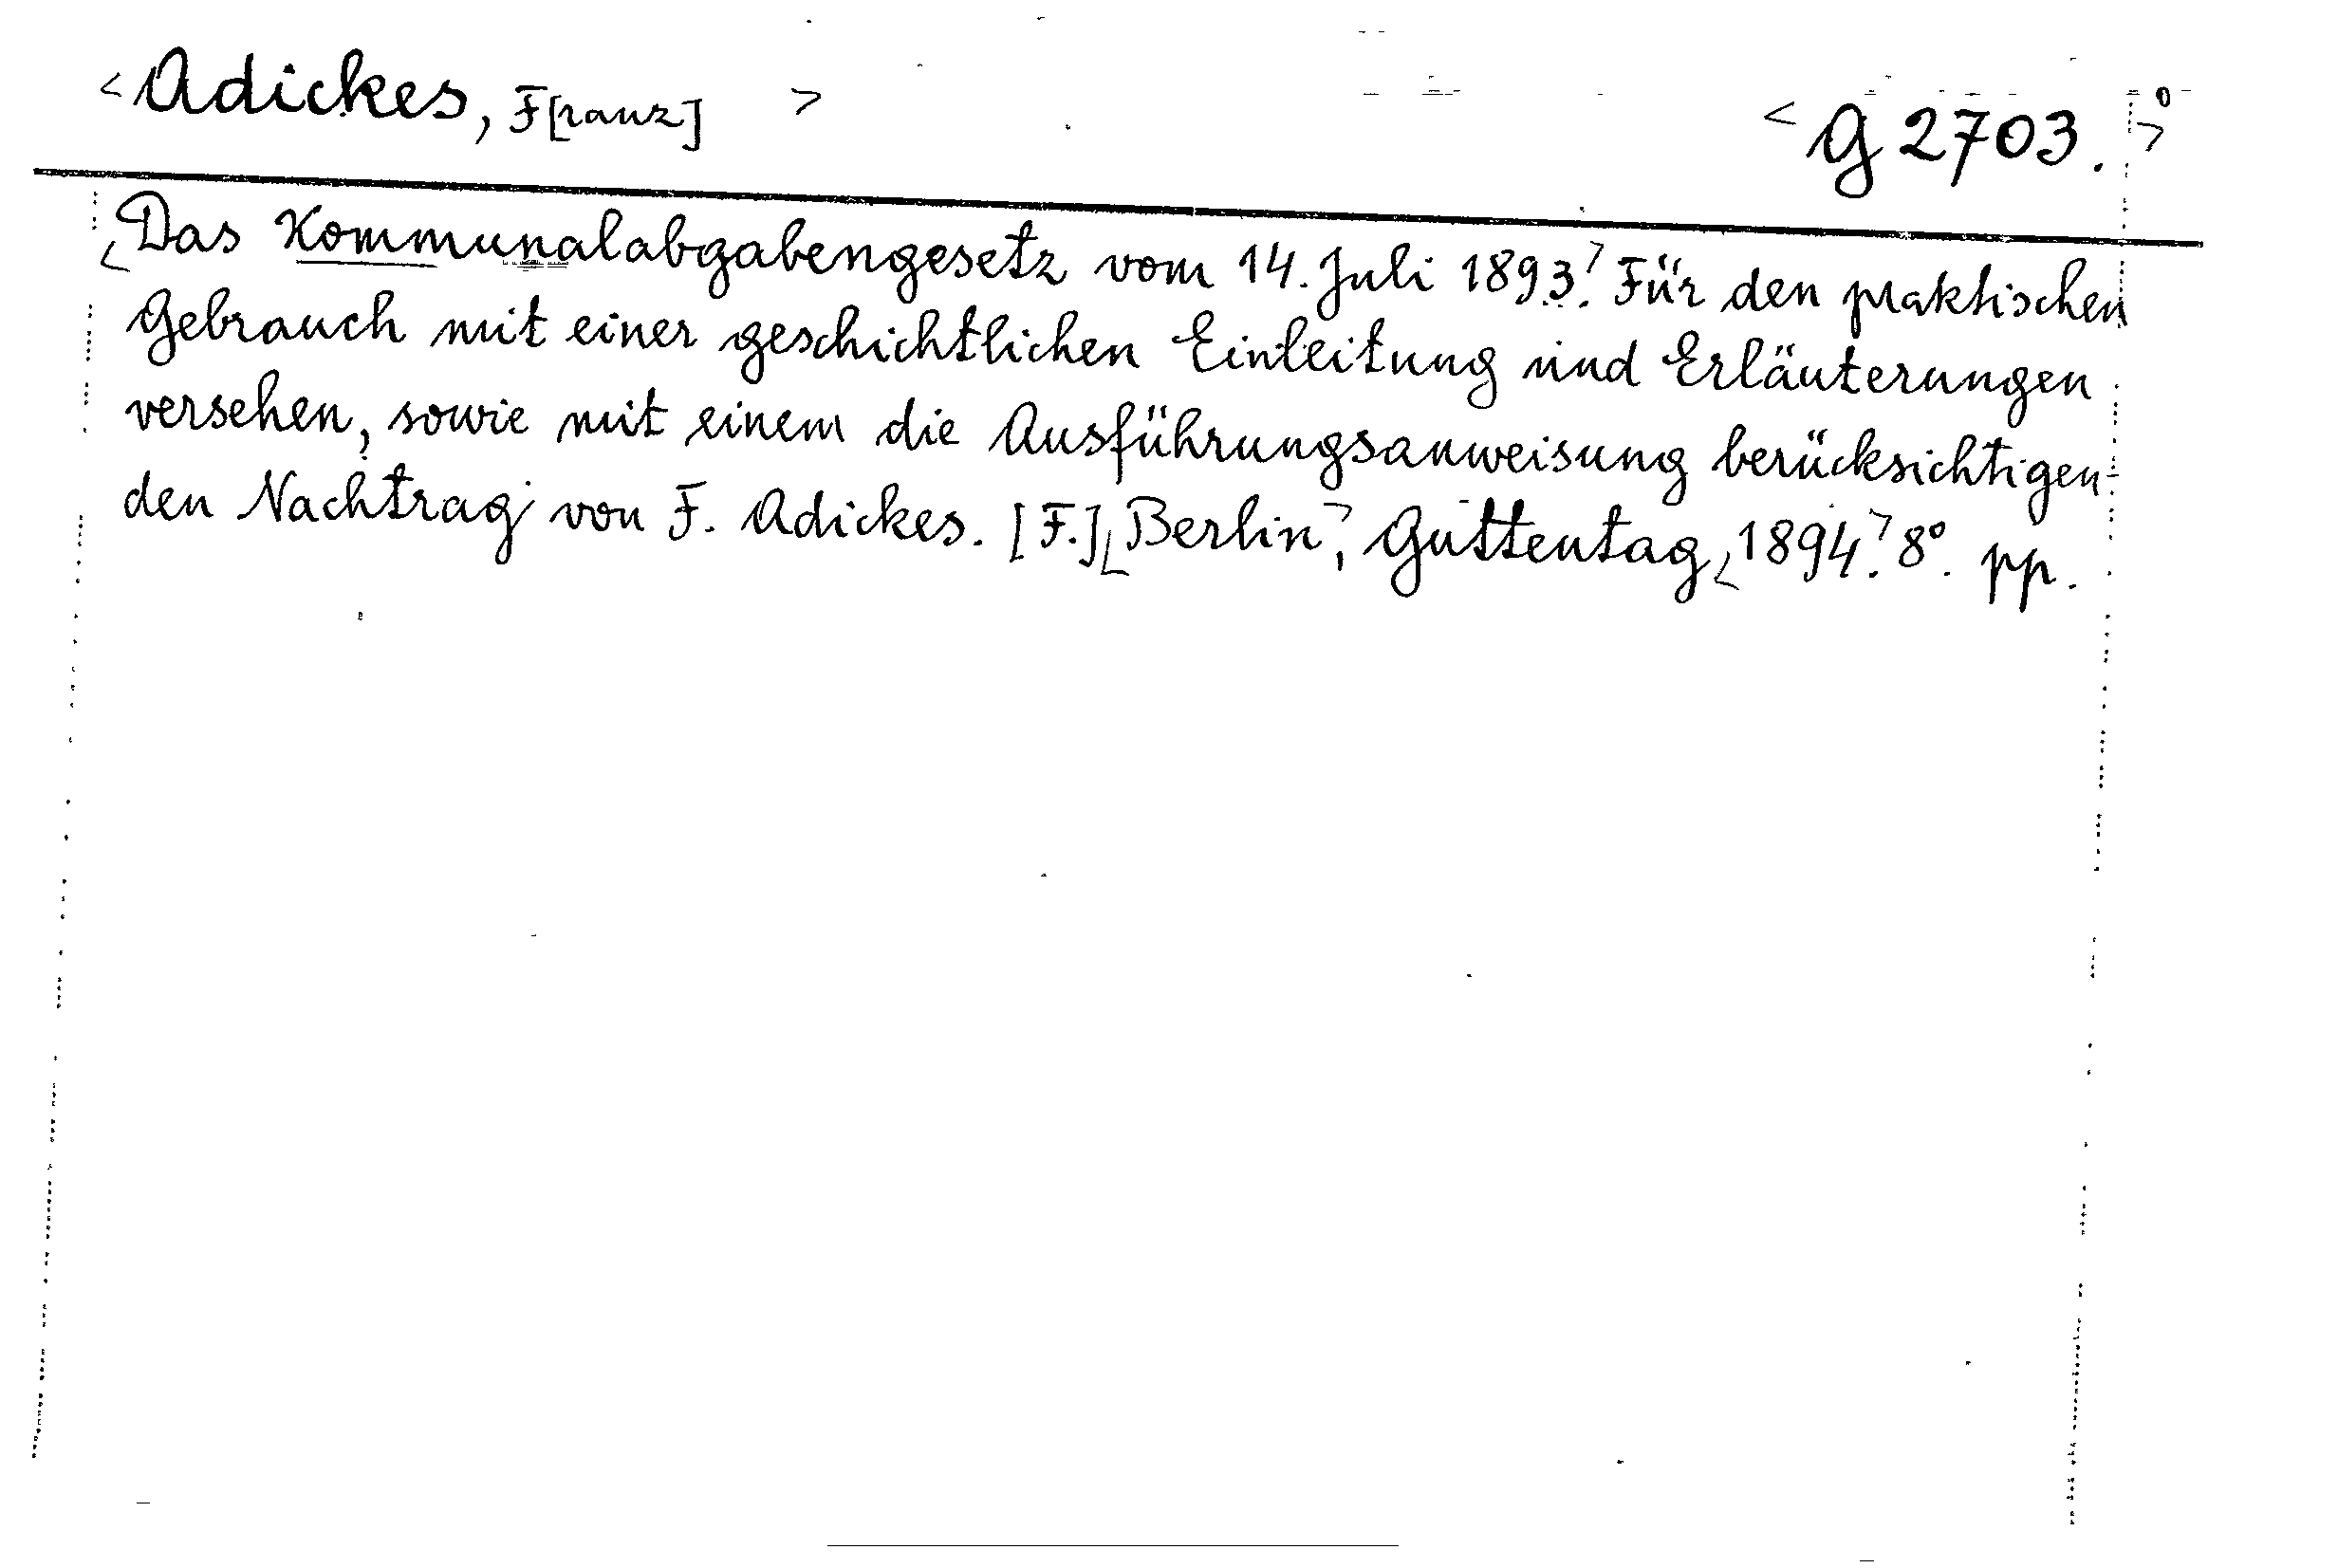 <Adickes, F[ranz] > <G 2703.>°
<Das Kommunalabgabengesetz vom 14. Juli 1893.> Für den praktischen
Gebrauch mit einer geschichtlichen Einleitung und Erläuterungen
versehen, sowie mit einem die Ausführungsanweisung berücksichtigen-
den Nachtrag von F. Adickes. [F.] <Berlin>, Guttentag, <1894.> 8°. pp.